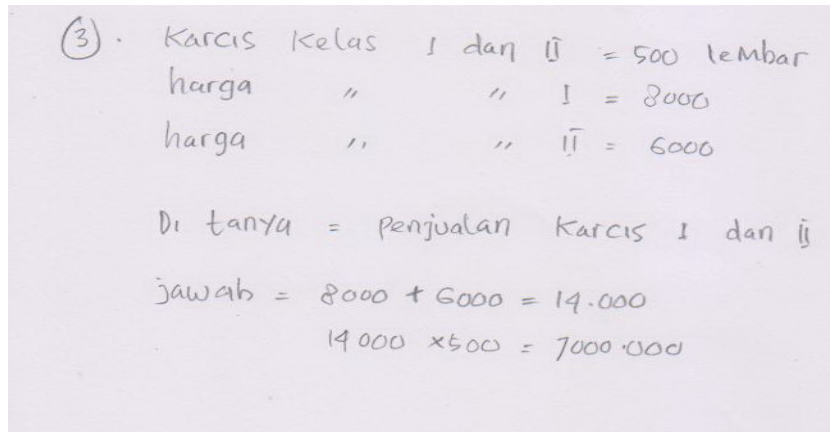 3. Karcis Kelas I dan II = 500 lembar
harga " " I = 8000
harga " " II = 6000
Di tanya = penjualan Karcis I dan II
jawab = 8000 + 6000 = 14.000
14 000 x500 = 7000.000